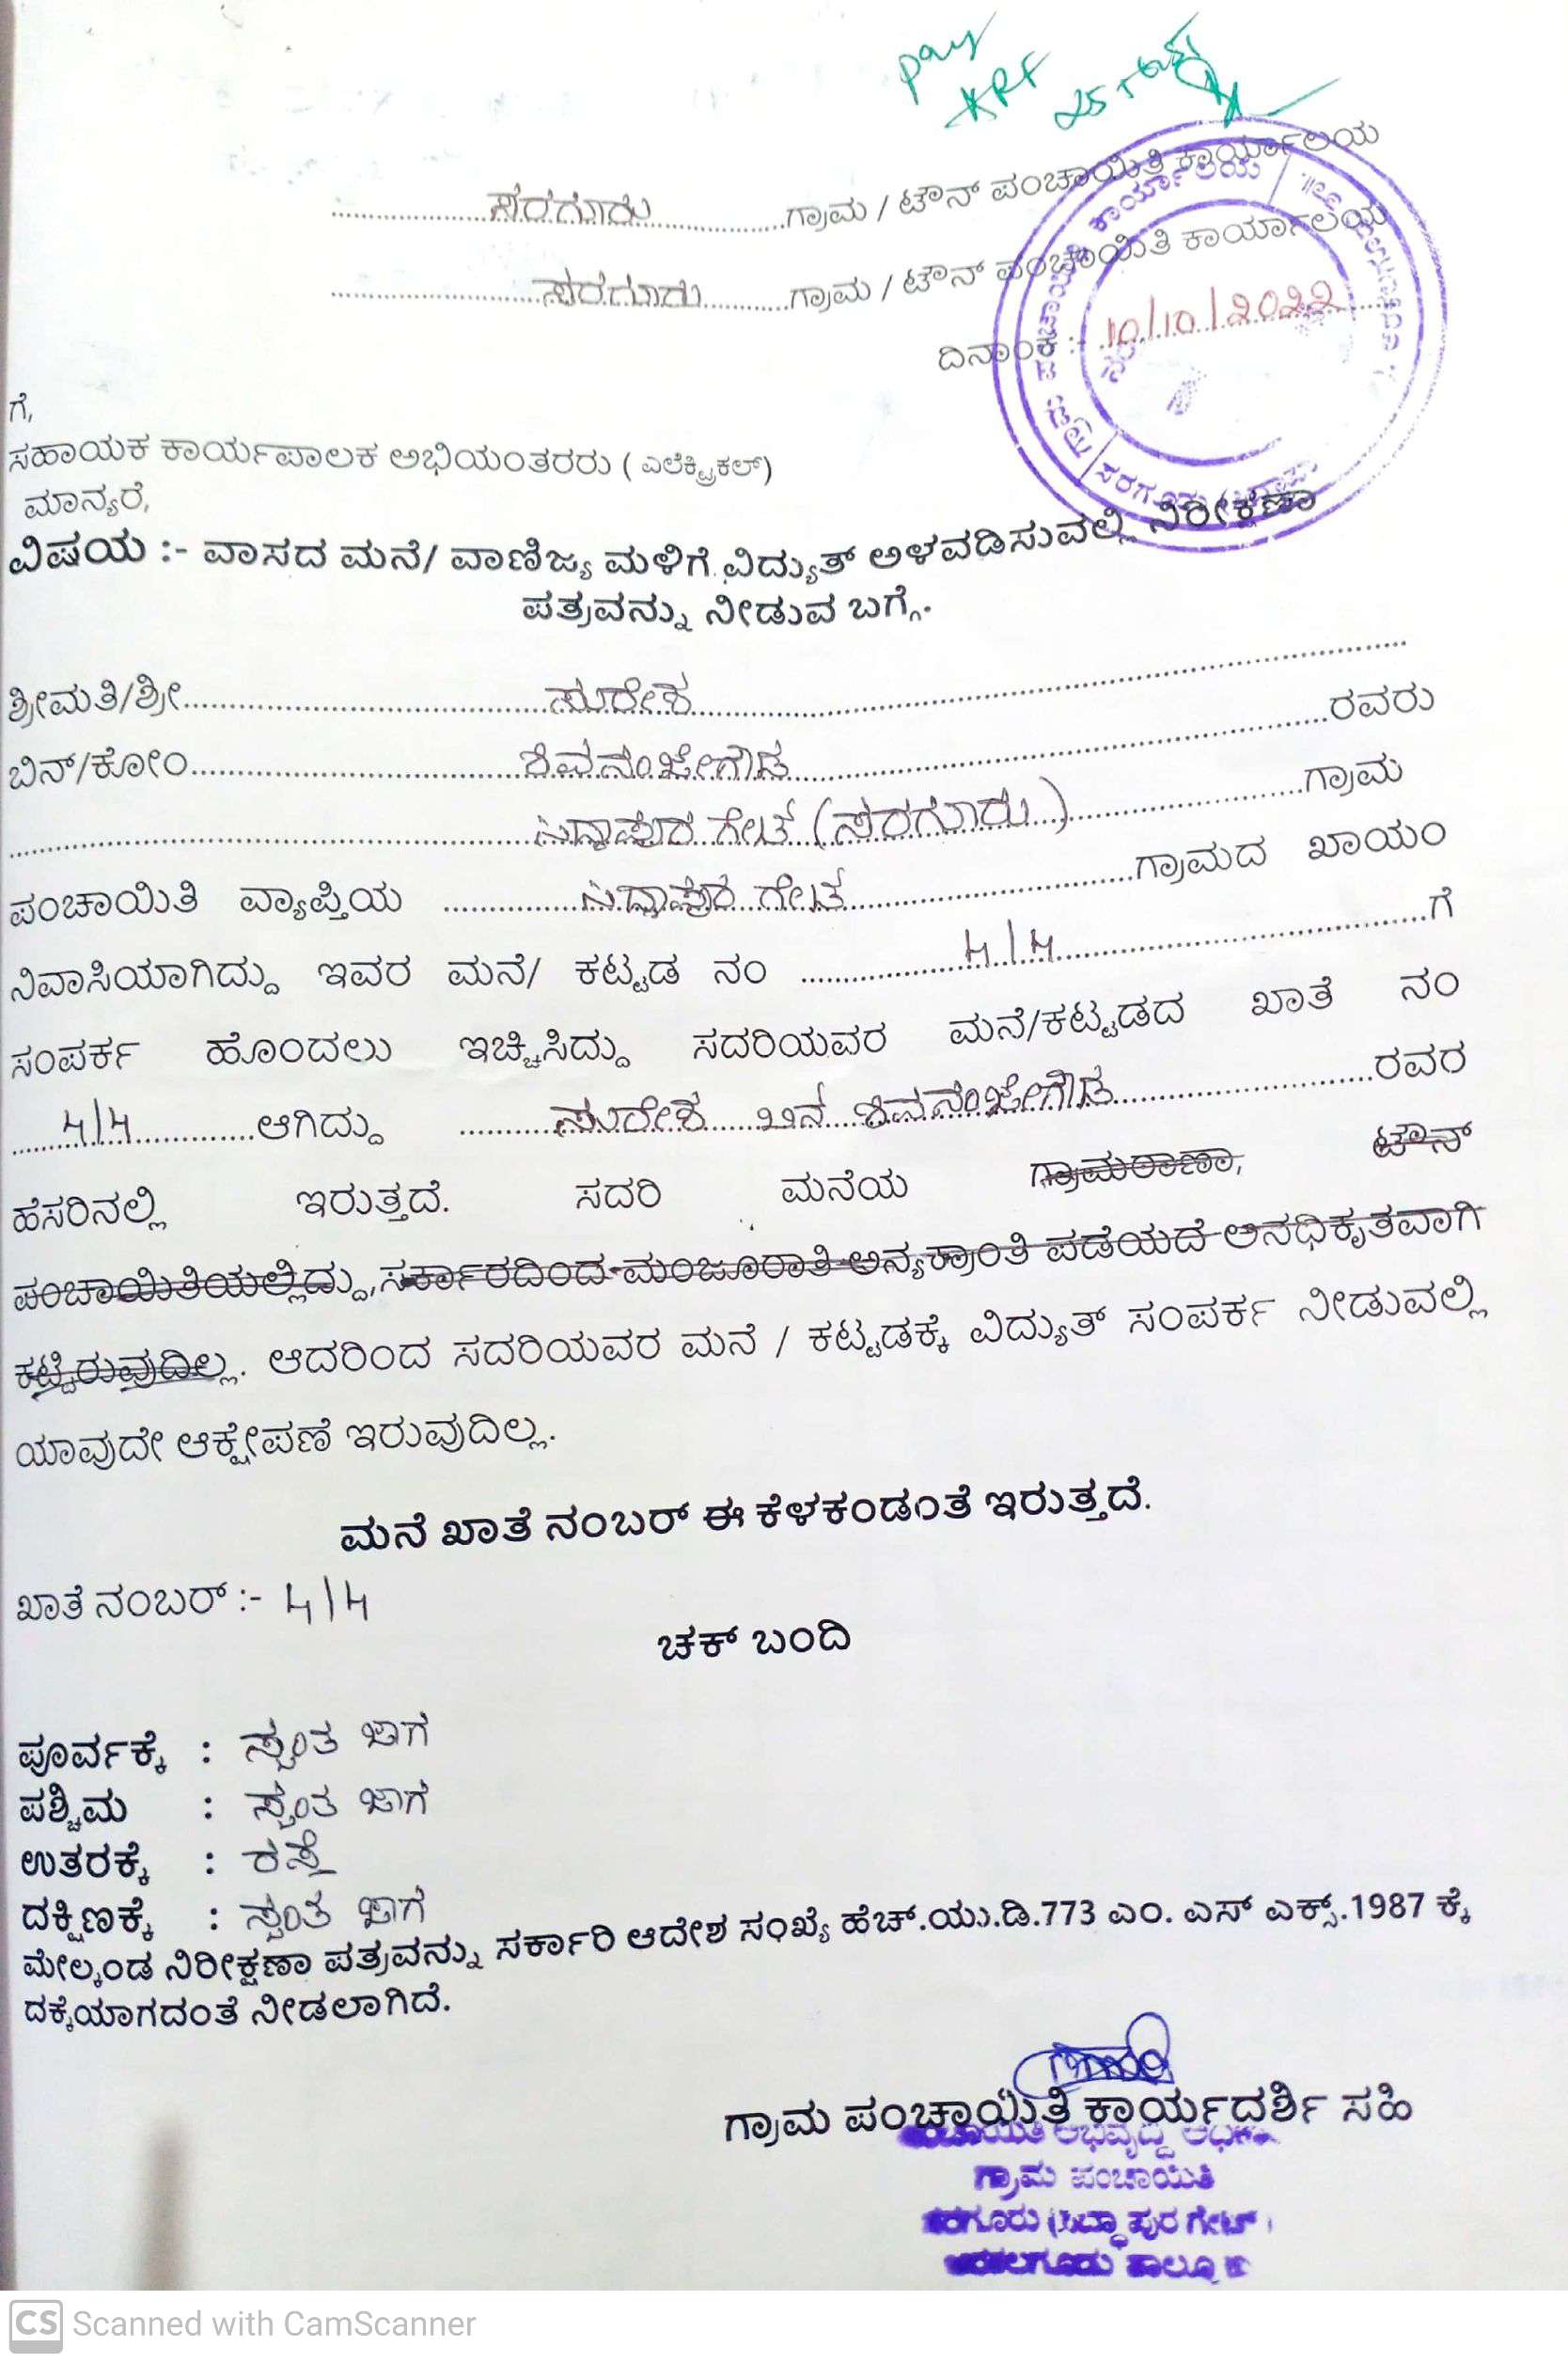 pay
ARF
ಸರಗೂರು ಗ್ರಾಮ / ಟೌನ್ ಪಂಚಾಯಿತಿ ಕಾರ್ಯಾಲಯ
ಸರಗೂರು ಗ್ರಾಮ / ಟೌನ್ ಪಂಚಾಯಿತಿ ಕಾರ್ಯಾಲಯ
ದಿನಾಂಕ :- 10/10/2022
ಗೆ,
ಸಹಾಯಕ ಕಾರ್ಯಪಾಲಕ ಅಭಿಯಂತರರು ( ಎಲೆಕ್ಟ್ರಿಕಲ್)
ಮಾನ್ಯರೆ,
ವಿಷಯ :- ವಾಸದ ಮನೆ/ ವಾಣಿಜ್ಯ ಮಳಿಗೆ ವಿದ್ಯುತ್ ಅಳವಡಿಸುವಲ್ಲಿ ನಿರೀಕ್ಷಣಾ
ಪತ್ರವನ್ನು ನೀಡುವ ಬಗ್ಗೆ.
ಶ್ರೀಮತಿ/ಶ್ರೀ ಸುರೇಶ
ಬಿನ್/ಕೋಂ ಶಿವನಂಜೇಗೌಡ ರವರು
ಸಿದ್ದಾಪುರ ಗೇಟ್ (ಸರಗೂರು) ಗ್ರಾಮ
ಪಂಚಾಯಿತಿ ವ್ಯಾಪ್ತಿಯ ಸಿದ್ದಾಪುರ ಗೇಟ್ ಗ್ರಾಮದ ಖಾಯಂ
ನಿವಾಸಿಯಾಗಿದ್ದು ಇವರ ಮನೆ/ ಕಟ್ಟಡ ನಂ 4/4 ಗೆ
ಸಂಪರ್ಕ ಹೊಂದಲು ಇಚ್ಚಿಸಿದ್ದು ಸದರಿಯವರ ಮನೆ/ಕಟ್ಟಡದ ಖಾತೆ ನಂ
4/4 ಆಗಿದ್ದು ಸುರೇಶ ಬಿನ್ ಶಿವನಂಜೇಗೌಡ ರವರ
ಹೆಸರಿನಲ್ಲಿ ಇರುತ್ತದೆ. ಸದರಿ ಮನೆಯ ಗ್ರಾಮಠಾಣಾ, ಟೌನ್
ಪಂಚಾಯಿತಿಯಲ್ಲಿದ್ದು,ಸರ್ಕಾರದಿಂದ ಮಂಜೂರಾತಿ ಅನ್ಯಕ್ರಾಂತಿ ಪಡೆಯದೆ ಅನಧಿಕೃತವಾಗಿ
ಕಟ್ಟಿರುವುದಿಲ್ಲ. ಆದರಿಂದ ಸದರಿಯವರ ಮನೆ / ಕಟ್ಟಡಕ್ಕೆ ವಿದ್ಯುತ್ ಸಂಪರ್ಕ ನೀಡುವಲ್ಲಿ
ಯಾವುದೇ ಆಕ್ಷೇಪಣೆ ಇರುವುದಿಲ್ಲ.
ಮನೆ ಖಾತೆ ನಂಬರ್ ಈ ಕೆಳಕಂಡಂತೆ ಇರುತ್ತದೆ.
ಖಾತೆ ನಂಬರ್ :- 4/4
ಚಕ್ ಬಂದಿ
ಪೂರ್ವಕ್ಕೆ : ಸ್ವಂತ ಜಾಗ
ಪಶ್ಚಿಮ : ಸ್ವಂತ ಜಾಗ
ಉತರಕ್ಕೆ : ರಸ್ತೆ
ದಕ್ಷಿಣಕ್ಕೆ : ಸ್ವಂತ ಜಾಗ
ಮೇಲ್ಕಂಡ ನಿರೀಕ್ಷಣಾ ಪತ್ರವನ್ನು ಸರ್ಕಾರಿ ಆದೇಶ ಸಂಖ್ಯೆ ಹೆಚ್.ಯು.ಡಿ.773 ಎಂ. ಎಸ್ ಎಕ್ಸ್.1987 ಕ್ಕೆ
ದಕ್ಕೆಯಾಗದಂತೆ ನೀಡಲಾಗಿದೆ.
ಗ್ರಾಮ ಪಂಚಾಯಿತಿ ಕಾರ್ಯದರ್ಶಿ ಸಹಿ
ಗ್ರಾಮ ಪಂಚಾಯಿತಿ
ಸರಗೂರು (ಸಿದ್ಧಾಪುರ ಗೇಟ್)
CS Scanned with CamScanner